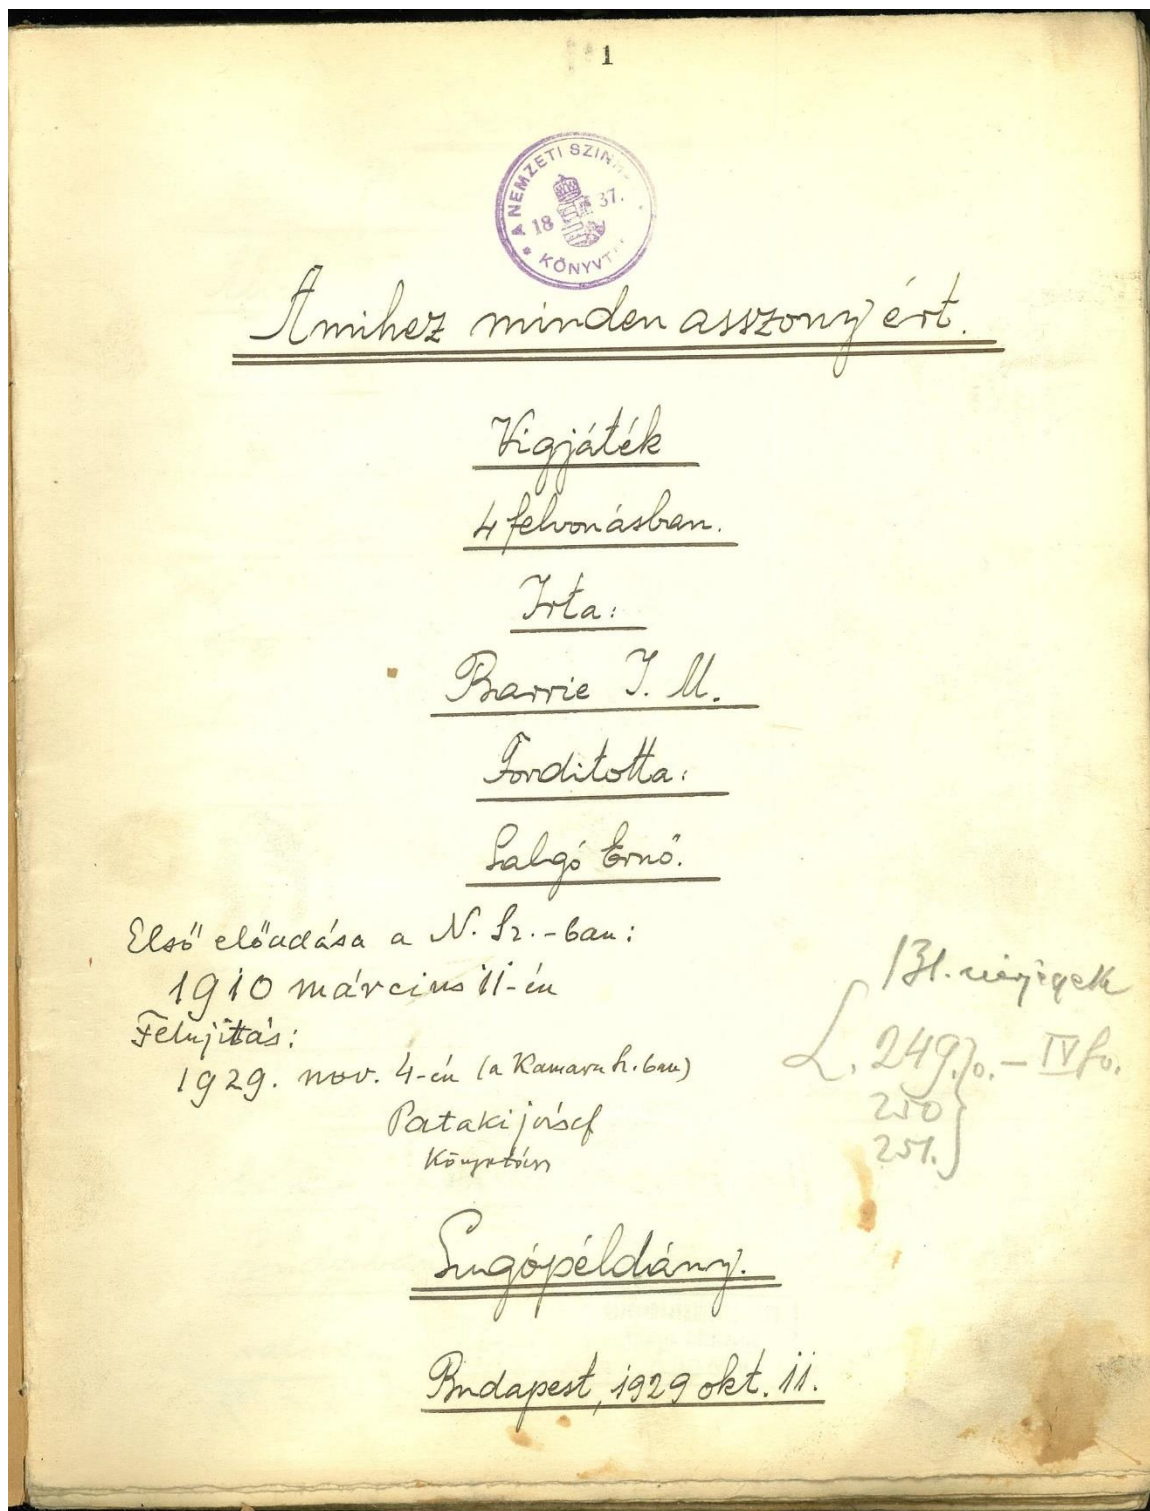 1
A NEMZETI SZINH
18 37.
KÖNYVT
Amihez minden asszony ért.
Vigjáték
4 felvonásban.
Irta:
Barrie J. M.
Forditotta:
Salgó Ernő.
Első előadása a N. Sz.-ban:
1910 március 11-én
Felujitás:
1929. nov. 4-én (a Kamara Sz. ban)
Pataki József
Könyvtáros
131.
L. 249.
250
251.
Sugópéldány.
Budapest, 1929 okt. 11.